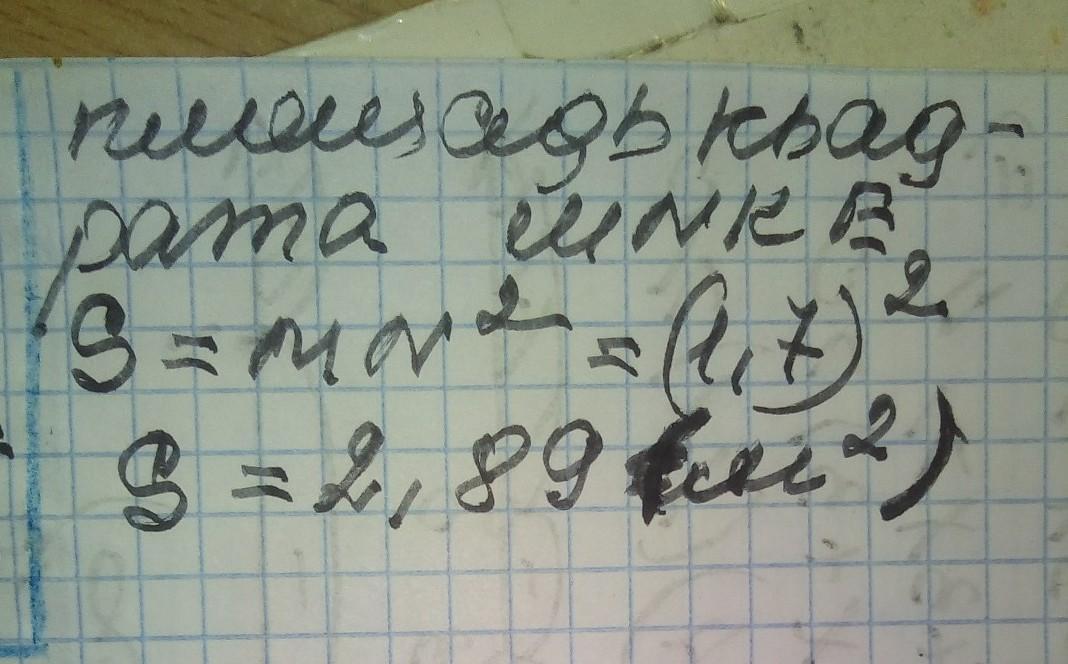 площадь квад-
рата MNKE
S = MN² = (1,7)²
S = 2,89 (м²)